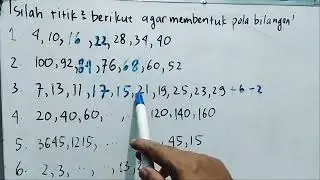 Isilah titik² berikut agar membentuk pola bilangan!
1. 4, 10, 16, 22, 28, 34, 40
2. 100, 92, 84, 76, 68, 60, 52
3. 7, 13, 11, 17, 15, 21, 19, 25, 23, 29 +6 -2
4. 20, 40, 60, ... 120, 140, 160
5. 3645, 1215, ... 45, 15
6. 2, 3, ... , 13,